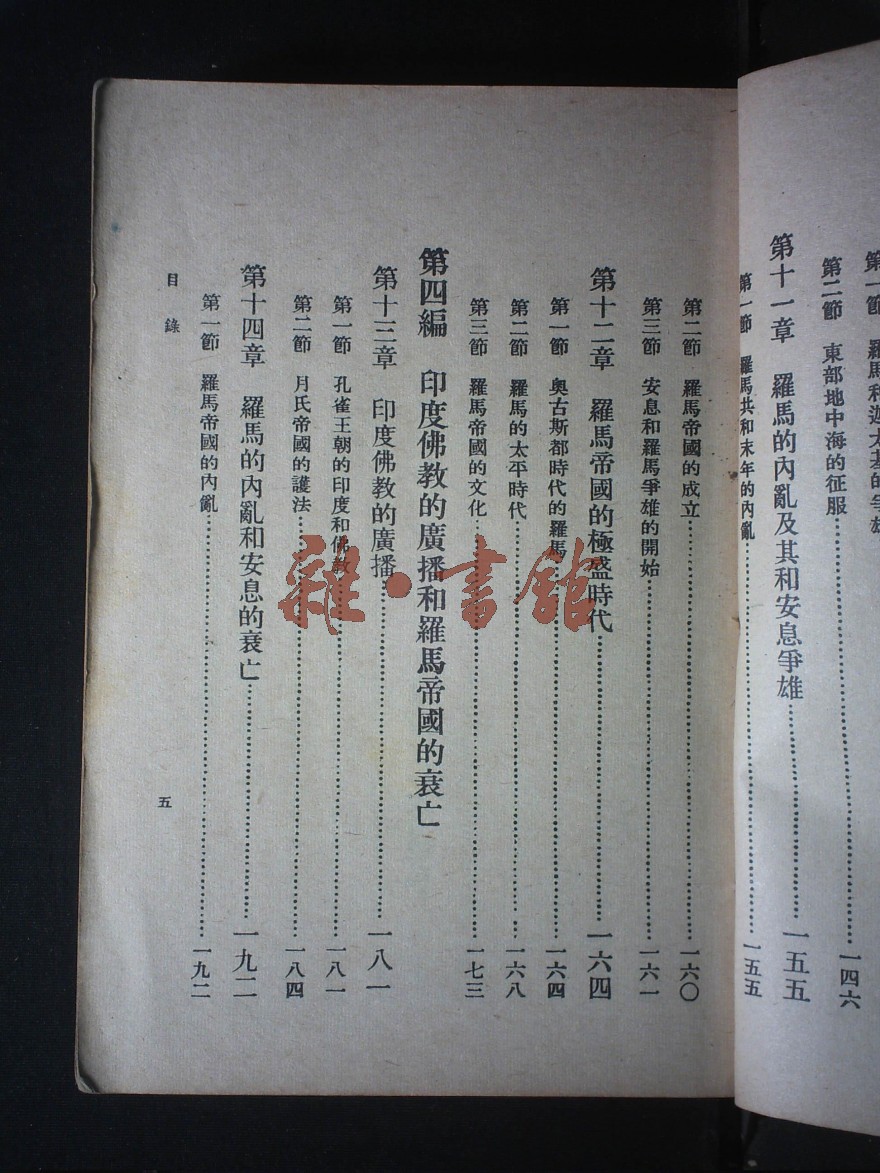 第二節 東部地中海的征服……一四六
第十一章 羅馬的內亂及其和安息爭雄……一五五
第一節 羅馬共和末年的內亂……一五五
第二節 羅馬帝國的成立……一六〇
第三節 安息和羅馬爭雄的開始……一六一
第十二章 羅馬帝國的極盛時代……一六四
第一節 奧古斯都時代的羅馬……一六四
第二節 羅馬的太平時代……一六八
第三節 羅馬帝國的文化……一七三
第四編 印度佛教的廣播和羅馬帝國的衰亡
第十三章 印度佛教的廣播……一八一
第一節 孔雀王朝的印度和佛教……一八一
第二節 月氏帝國的護法……一八四
第十四章 羅馬的內亂和安息的衰亡……一九二
第一節 羅馬帝國的內亂……一九二
目錄
五
雜·書館